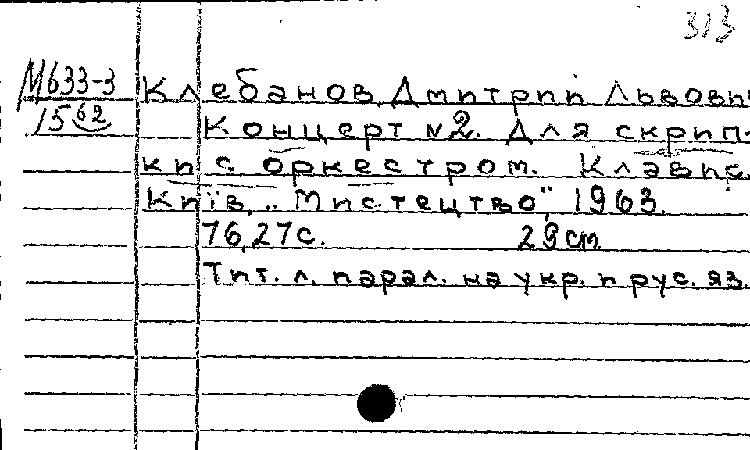 313
М633-3 Клебанов, Дмитрий Львови
15 62 Концерт №2. Для скрип-
ки с оркестром. Клавис
Київ, „Мистецтво", 1963.
76, 27с. 29 cm.
Тит. л. парал. на укр. и рус. яз.